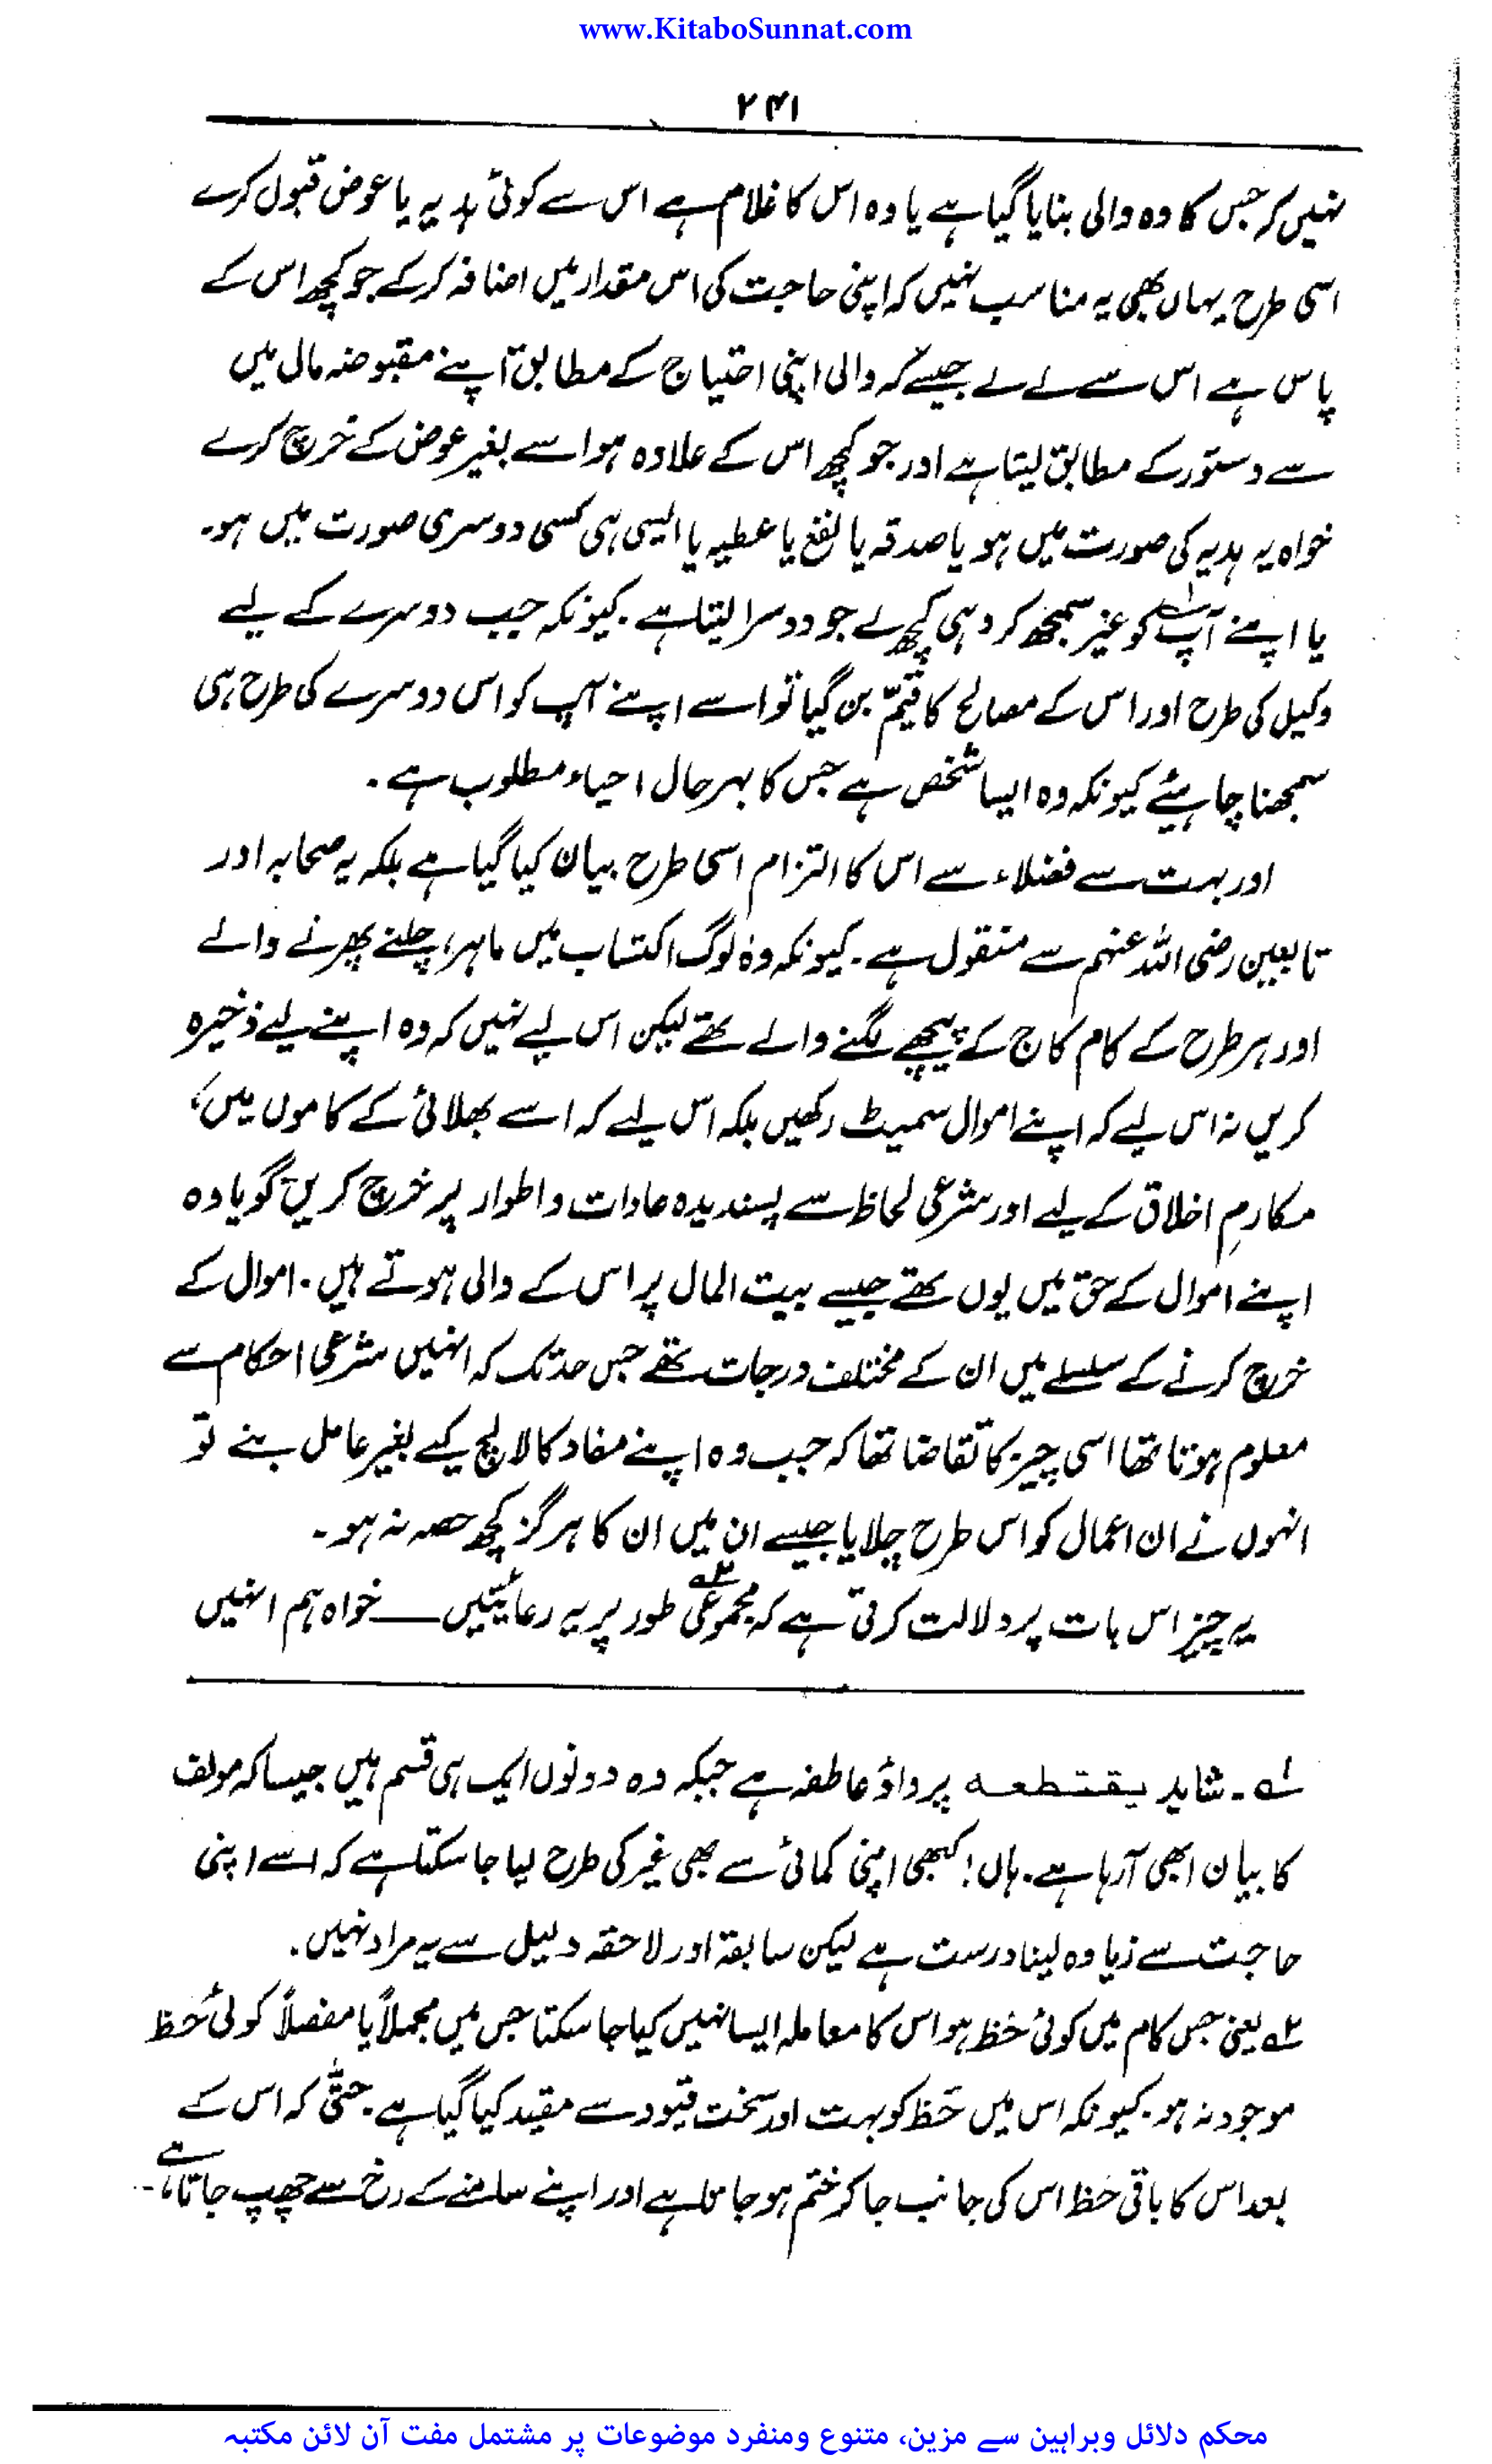 www.KitaboSunnat.com
۲۴۱
نہیں کہ جس کا وہ والی بنایا گیا ہے یا وہ اس کا غلام ہے اس سے کوئی ہدیہ یا عوض قبول کرے
اسی طرح یہاں بھی یہ مناسب نہیں کہ اپنی حاجت کی اس مقدار میں اضافہ کرکے جو کچھ اس کے
پاس ہے اس سے لے لے جیسے کہ والی اپنی احتیاج کے مطابق اپنے مقبوضہ مال میں
سے دستور کے مطابق لیتا ہے اور جو کچھ اس کے علاوہ ہو اسے بغیر عوض کے خرچ کرے
خواہ یہ ہدیہ کی صورت میں ہو یا صدقہ یا نفع یا عطیہ یا ایسی ہی کسی دوسری صورت میں ہو۔
یا اپنے آپ کو غیر سمجھ کر وہی کچھ لے جو دوسرا لیتا ہے۔ کیونکہ جب دوسرے کے لیے
وکیل کی طرح اور اس کے مصالح کا قیّم بن گیا تو اسے اپنے آپ کو اس دوسرے کی طرح ہی
سمجھنا چاہیئے کیونکہ وہ ایسا شخص ہے جس کا بہرحال احیاء مطلوب ہے۔
اور بہت سے فضلاء سے اس کا التزام اسی طرح بیان کیا گیا ہے بلکہ یہ صحابہ اور
تابعین رضی اللہ عنہم سے منقول ہے۔ کیونکہ وہ لوگ اکتساب میں ماہر، چلنے پھرنے والے
اور ہر طرح کے کام کاج کے پیچھے لگنے والے تھے لیکن اس لیے نہیں کہ وہ اپنے لیے ذخیرہ
کریں نہ اس لیے کہ اپنے اموال سمیٹ رکھیں بلکہ اس لیے کہ اسے بھلائی کے کاموں میں،
مکارمِ اخلاق کے لیے اور شرعی لحاظ سے پسندیدہ عادات واطوار پر خرچ کریں گویا وہ
اپنے اموال کے حق میں یوں تھے جیسے بیت المال پر اس کے والی ہوتے ہیں۔ اموال کے
خرچ کرنے کے سلسلے میں ان کے مختلف درجات تھے جس حد تک کہ انہیں شرعی احکام سے
معلوم ہوتا تھا اسی چیز کا تقاضا تھا کہ جب وہ اپنے مفاد کا لالچ کیے بغیر عامل بنے تو
انہوں نے ان اعمال کو اس طرح چلایا جیسے ان میں ان کا ہرگز کچھ حصہ نہ ہو۔
یہ چیز اس بات پر دلالت کرتی ہے کہ مجموعی۲ طور پر یہ رعائیتیں ــــ خواہ ہم انہیں
۱؎۔ شاید یقتطعہ پر واؤ عاطفہ ہے جبکہ وہ دونوں ایک ہی قسم ہیں جیسا کہ مولف
کا بیان ابھی آرہا ہے۔ ہاں! کبھی اپنی کمائی سے بھی غیر کی طرح لیا جا سکتا ہے کہ اسے اپنی
حاجت سے زیادہ لینا درست ہے لیکن سابقہ اور لاحقہ دلیل سے یہ مراد نہیں۔
۲؎ یعنی جس کام میں کوئی حظ ہو اس کا معاملہ ایسا نہیں کیا جا سکتا جس میں مجملاً یا مفصلاً کوئی حظ
موجود نہ ہو۔ کیونکہ اس میں حَظ کو بہت اور سخت قیود سے مقید کیا گیا ہے۔ حتّٰی کہ اس کے
بعد اس کا باقی حَظ اس کی جانب جا کر ختم ہو جاتا ہے اور اپنے سامنے کے رخ سے چھپ جاتا ہے۔
محکم دلائل وبراہین سے مزین، متنوع ومنفرد موضوعات پر مشتمل مفت آن لائن مکتبہ